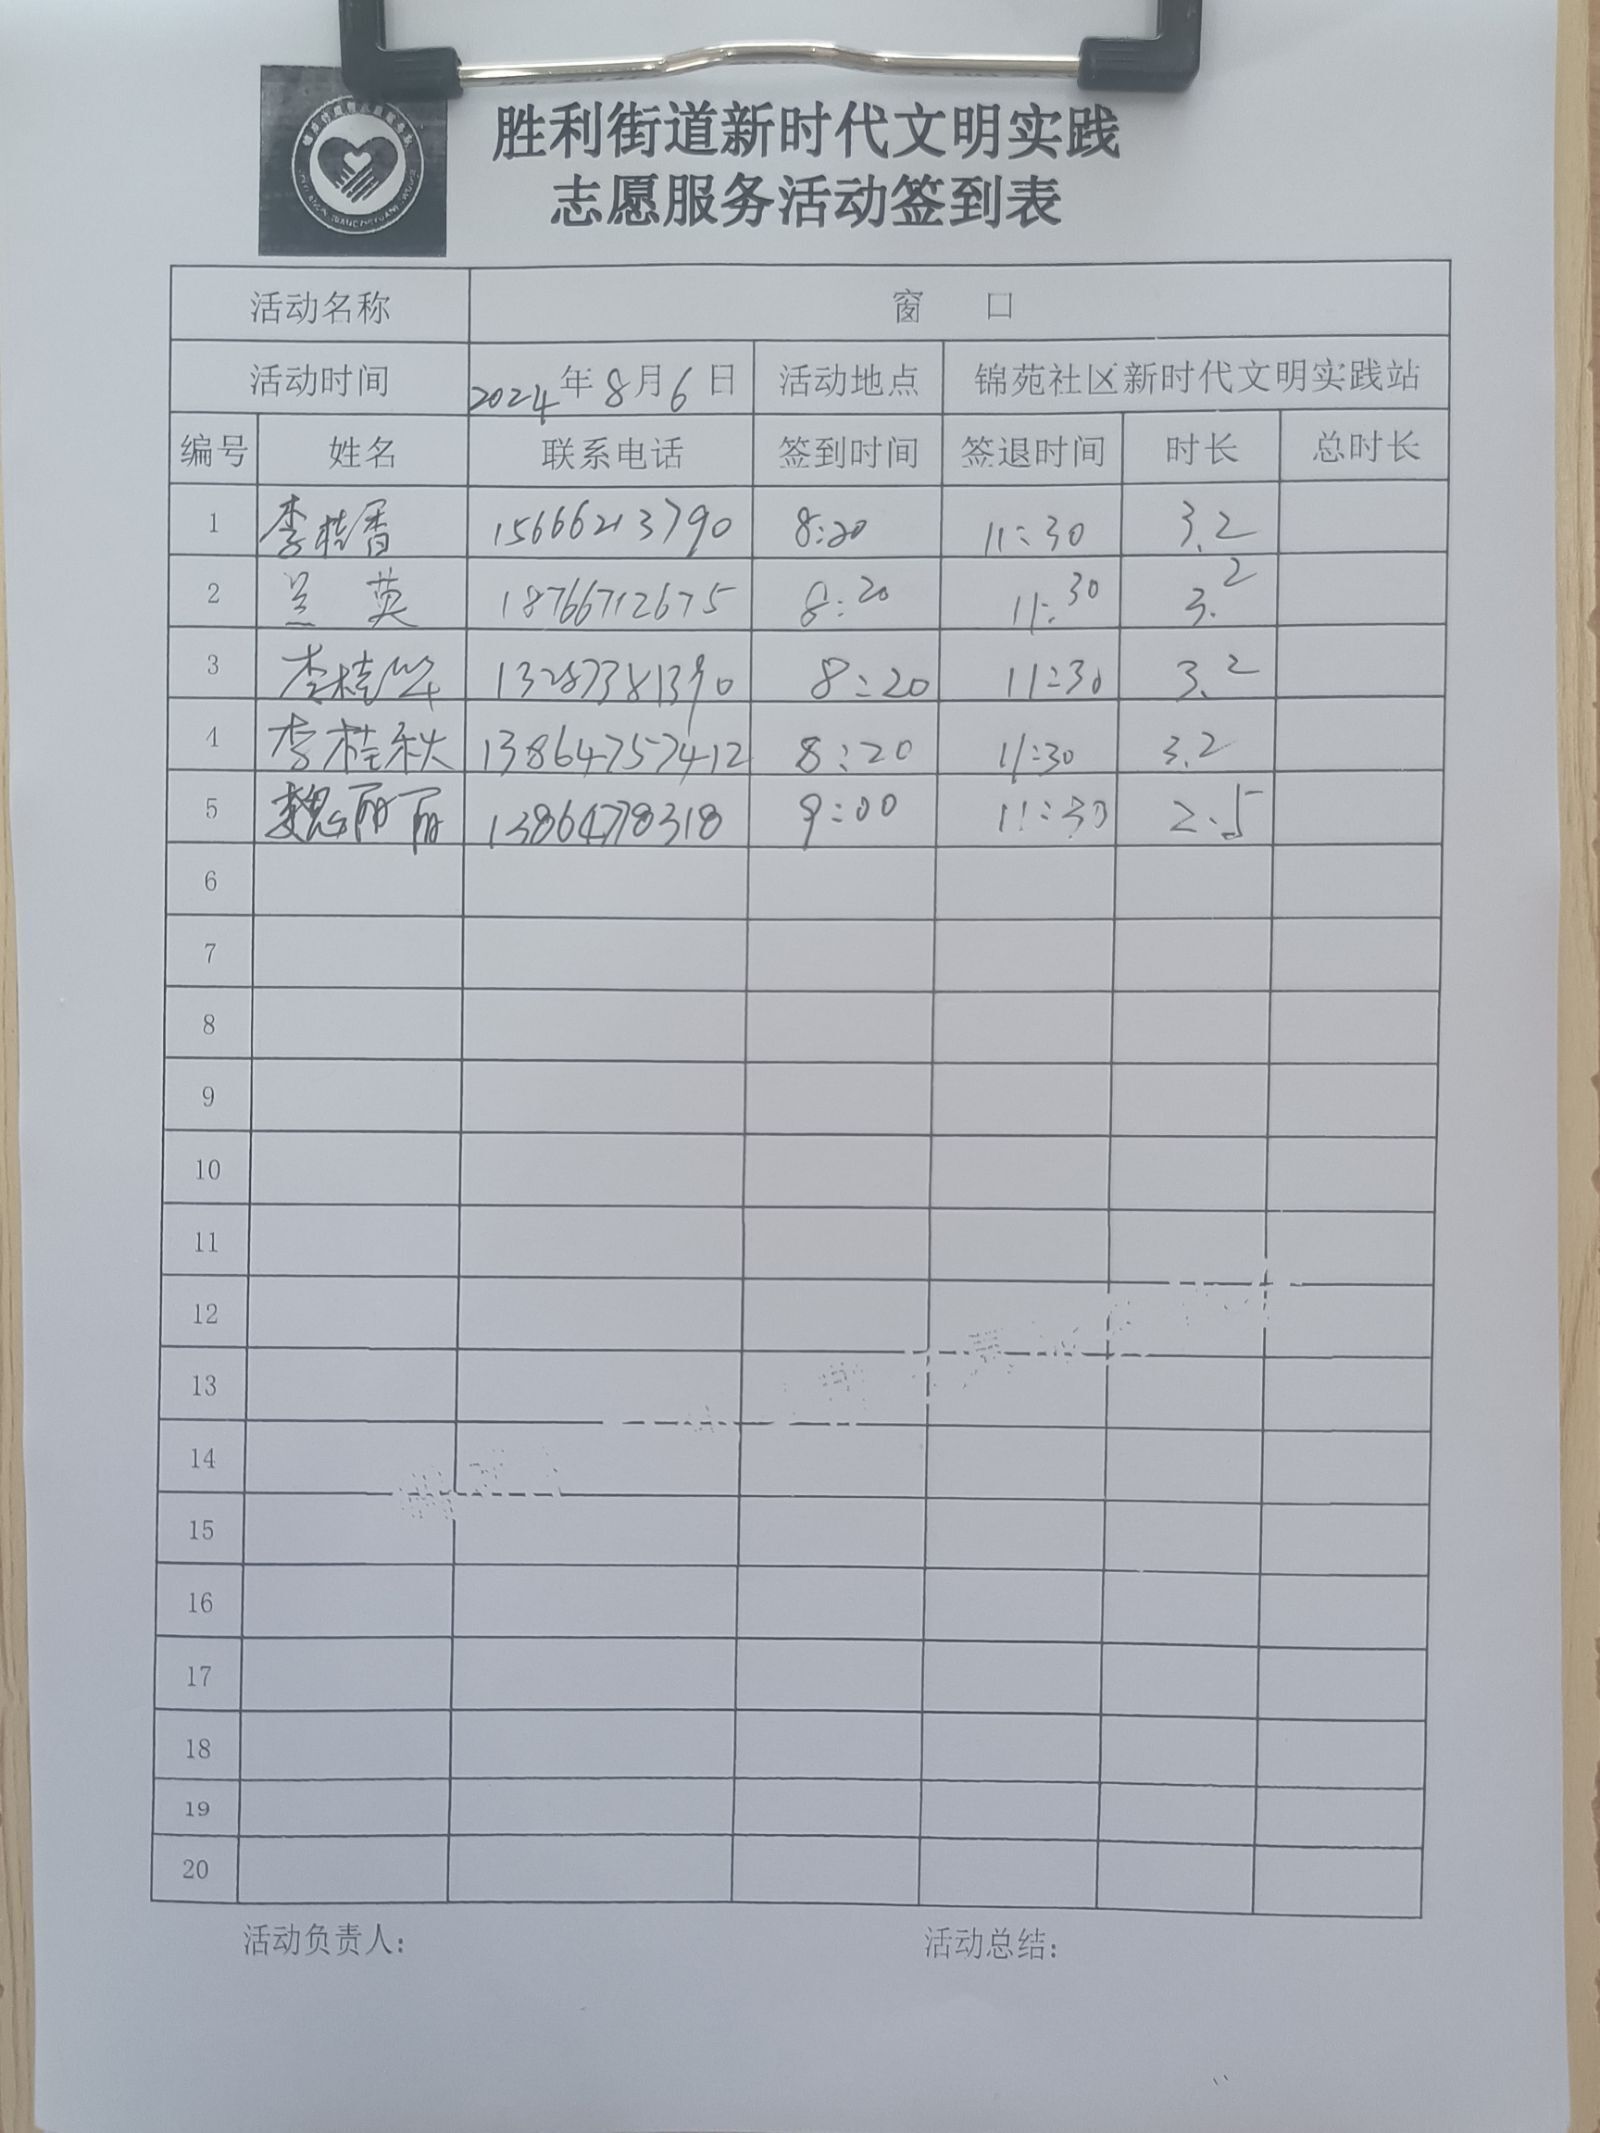 胜利街道新时代文明实践
志愿服务活动签到表
活动名称 窗 口
活动时间 2024年8月6日 活动地点 锦苑社区新时代文明实践站
编号 姓名 联系电话 签到时间 签退时间 时长 总时长
1 李桂香 15666213790 8:20 11:30 3.2
2 兰英 18766712675 8:20 11:30 3.2
3 李桂华 13287381390 8:20 11:30 3.2
4 李桂秋 13864757412 8:20 11:30 3.2
5 魏丽丽 13864778318 9:00 11:30 2.5
6
7
8
9
10
11
12
13
14
15
16
17
18
19
20
活动负责人: 活动总结: